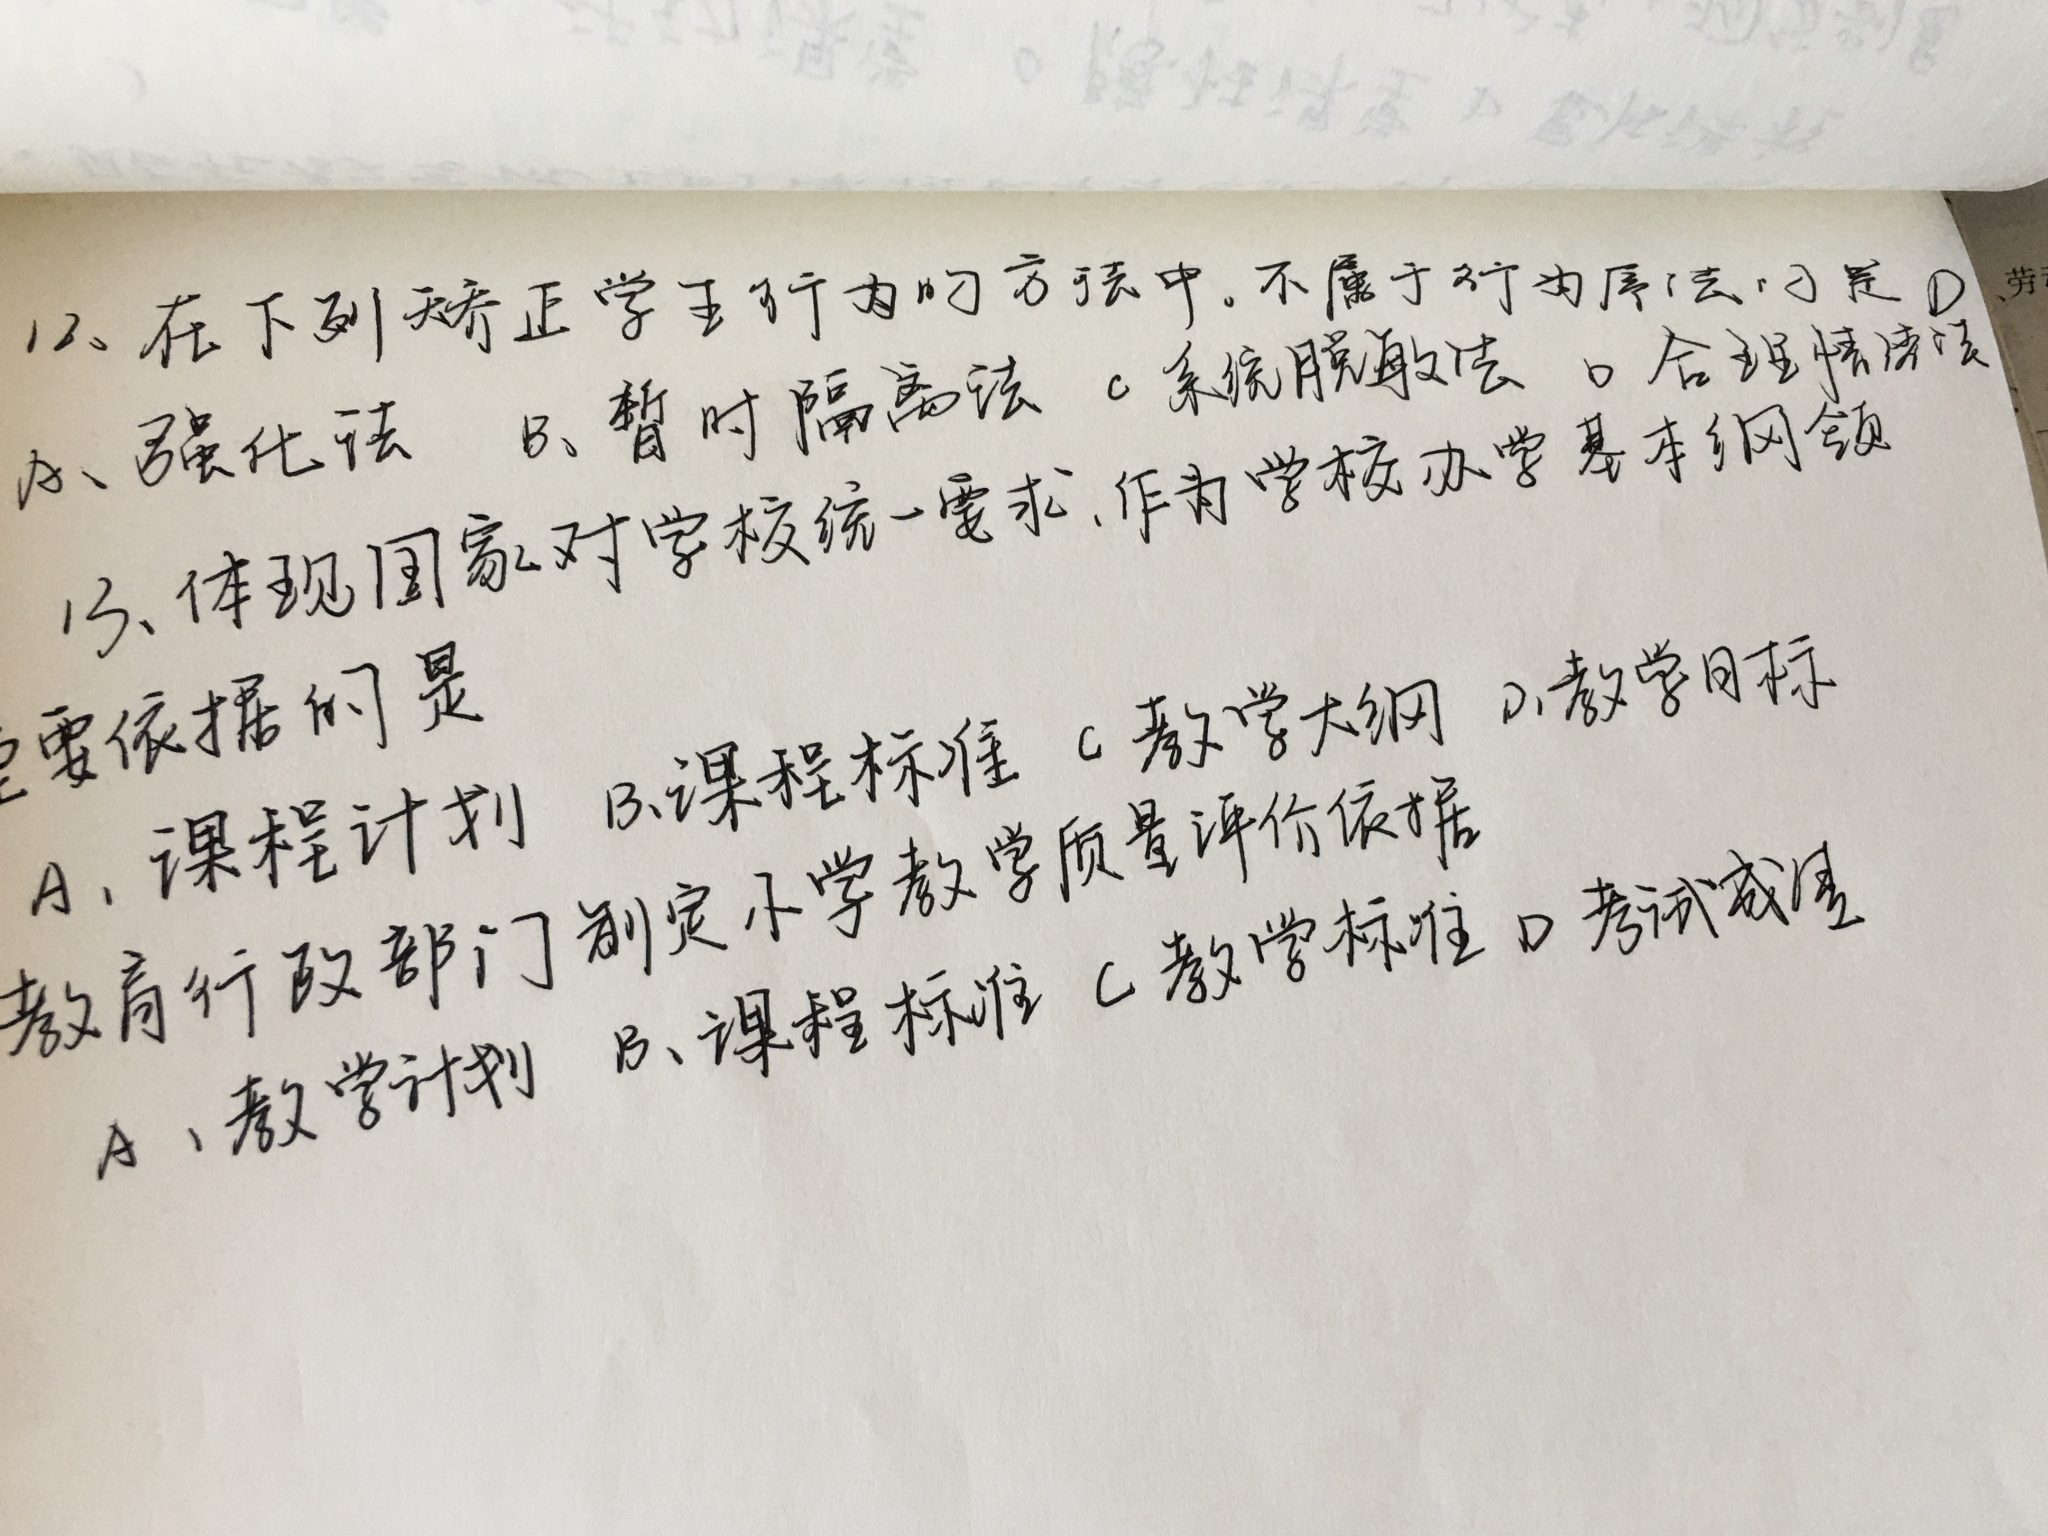 12、在下列矫正学生行为的方法中。不属于行为疗法的是 D
A、强化法 B、暂时隔离法 C 系统脱敏法 D 合理情绪法
13、体现国家对学校统一要求、作为学校办学基本纲领
重要依据的是
A、课程计划 B、课程标准 C 教学大纲 D、教学目标
教育行政部门制定小学教学质量评价依据
A、教学计划 B、课程标准 C 教学标准 D 考试成绩
劳